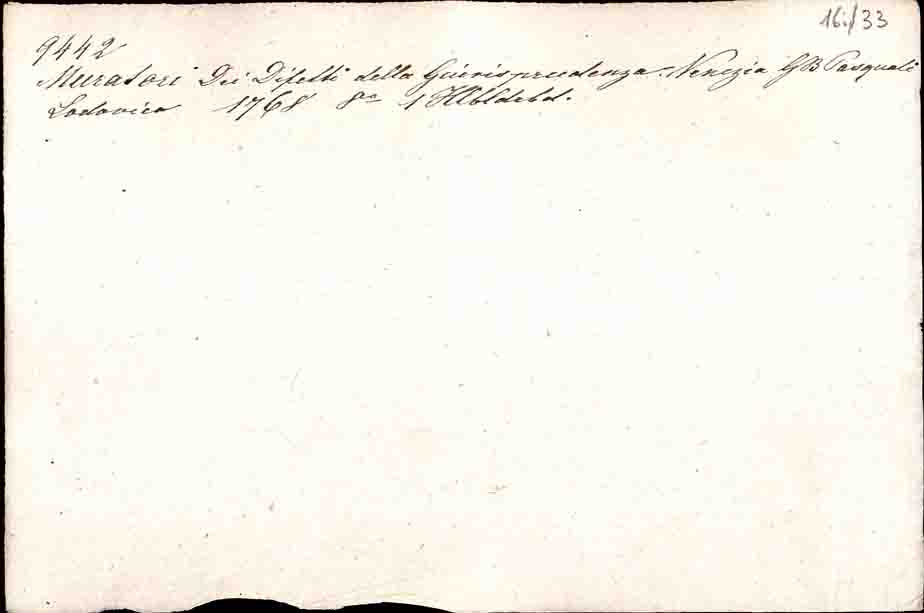 16.i/33
9442
Muratori Dei Difetti della Giurisprudenza. Venezia GB Pasquali
Lodovico 1768 8° 1 Hlbldrbd.